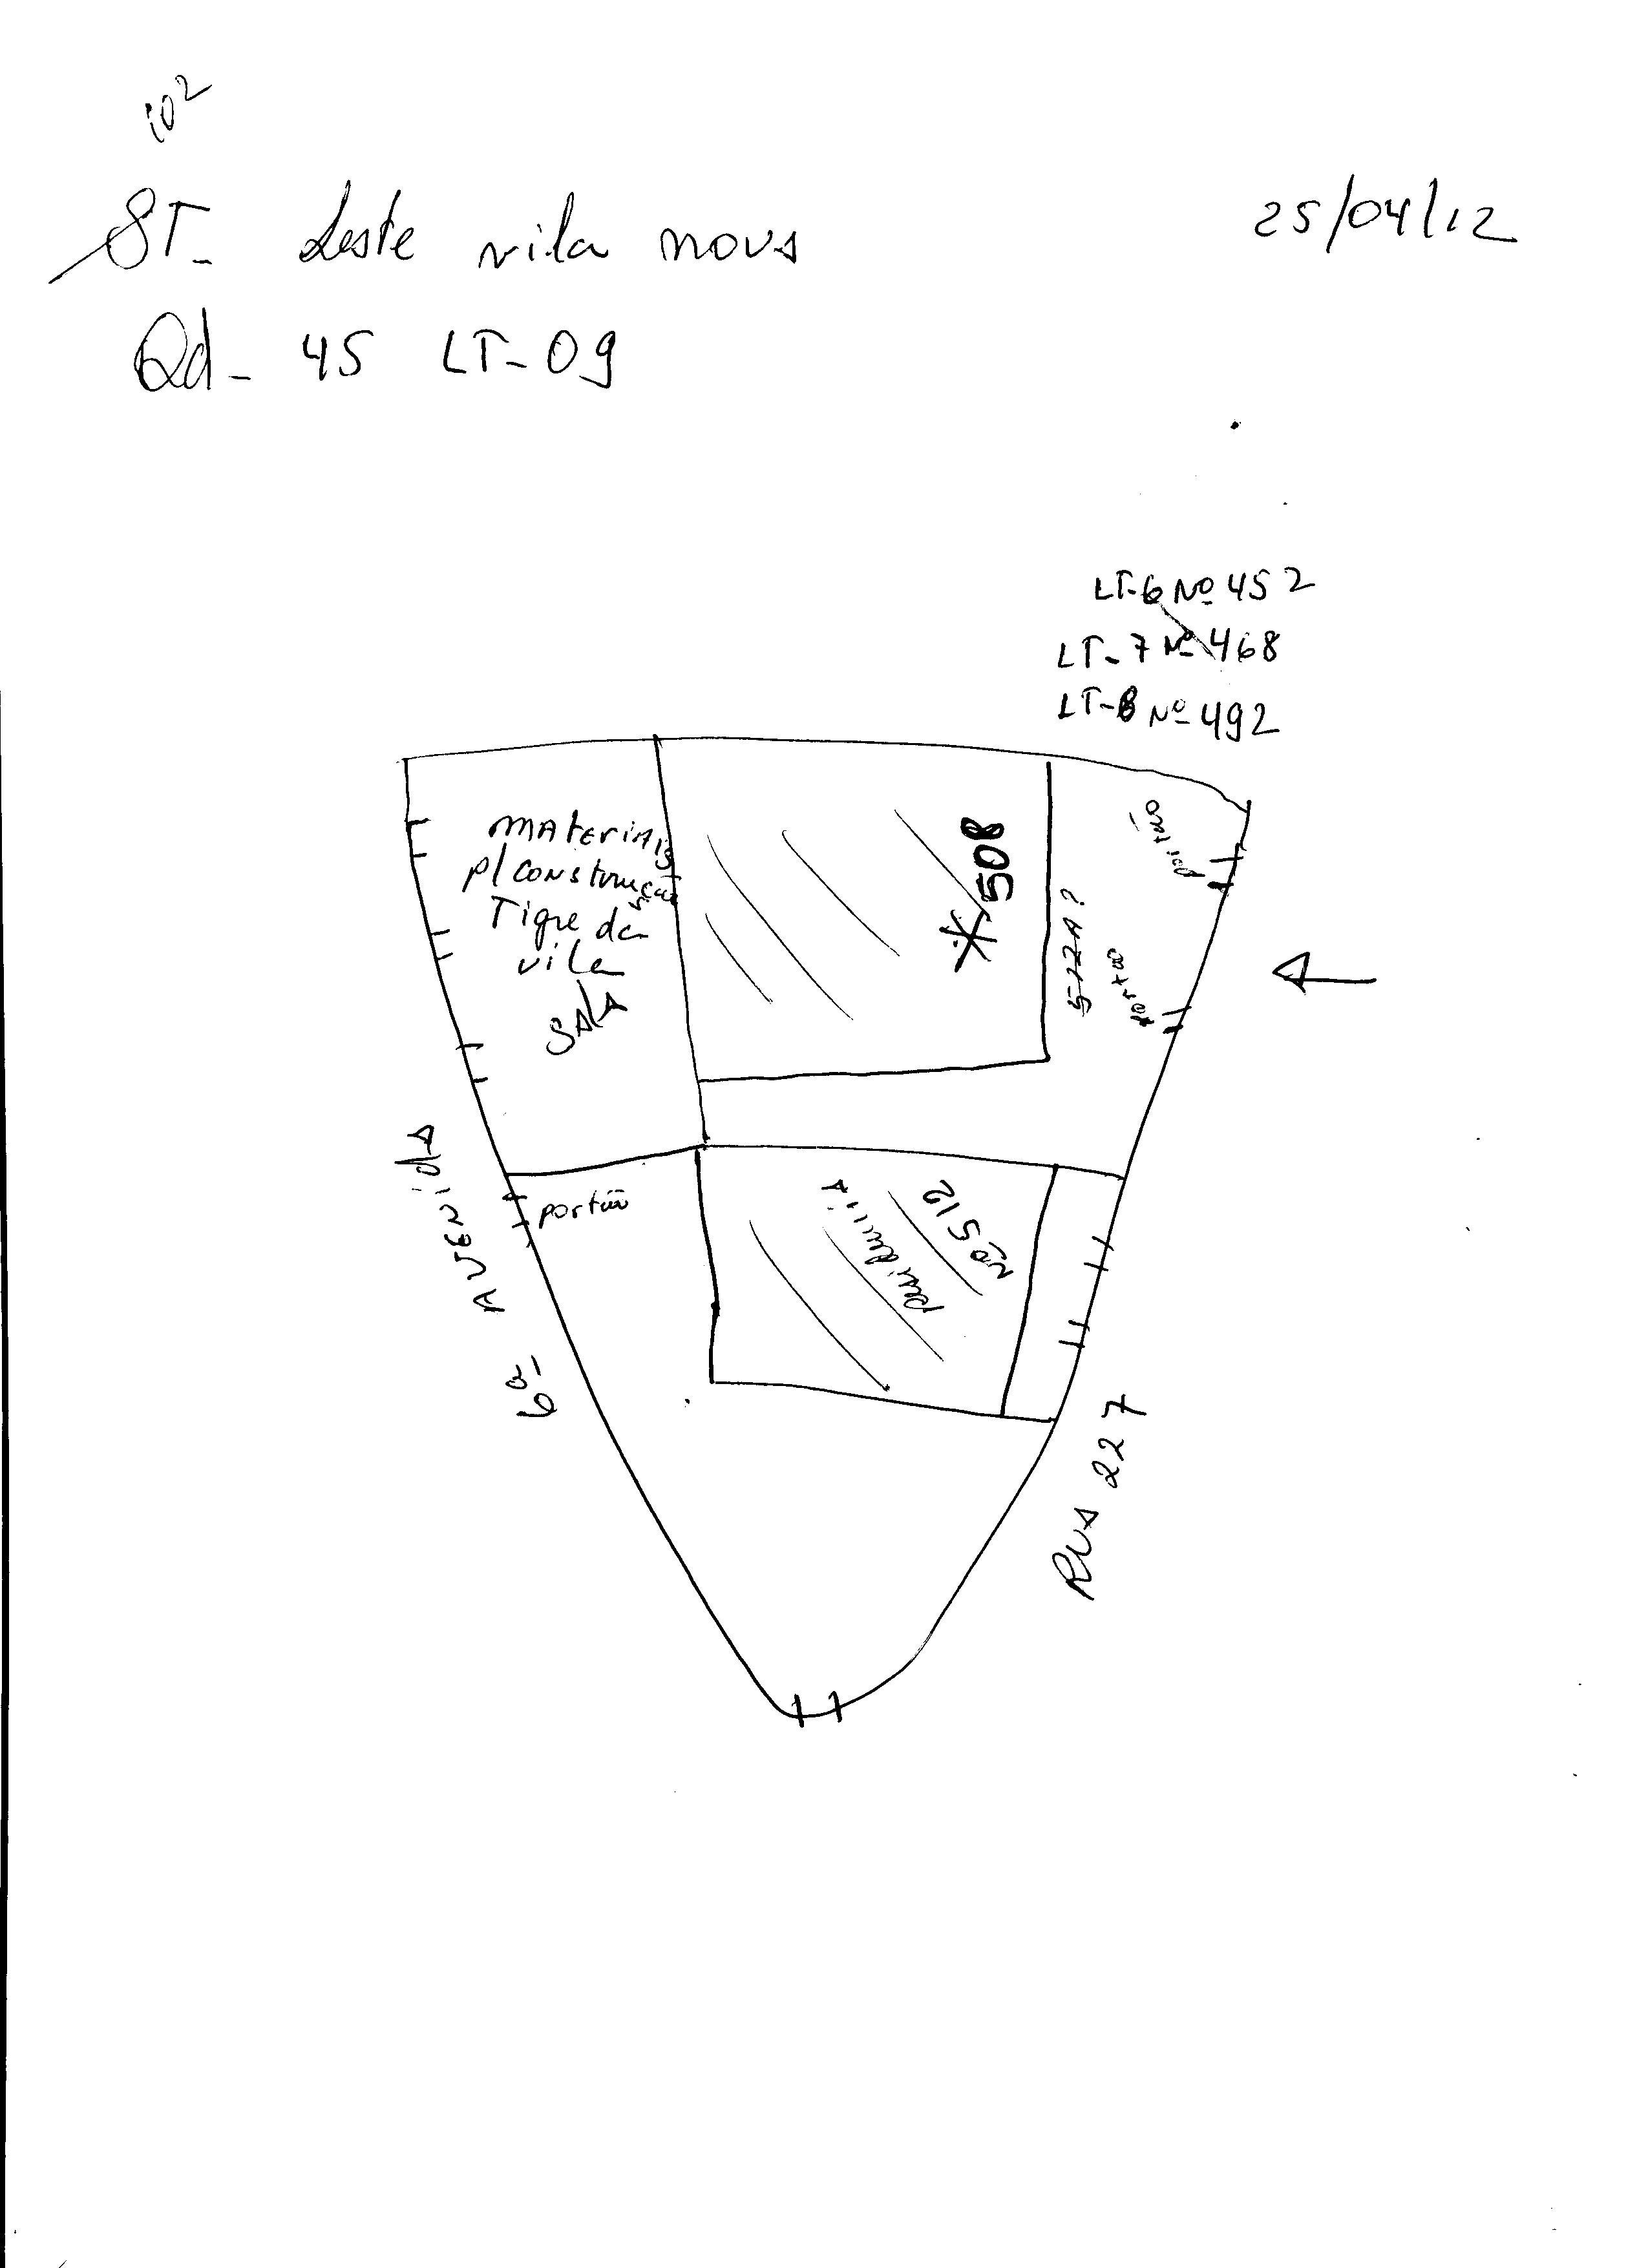 102
ST- Leste vila nova
25/04/12
Qd- 45 LT-09
LT-6 Nº 452
LT-7 Nº 468
LT-8 Nº 492
materiais
p/ construção
Tigre da
vila
SALA
* 508
512A?
portão
portão
portão
residencia
Nº 512
6ª AVENIDA
RUA 227